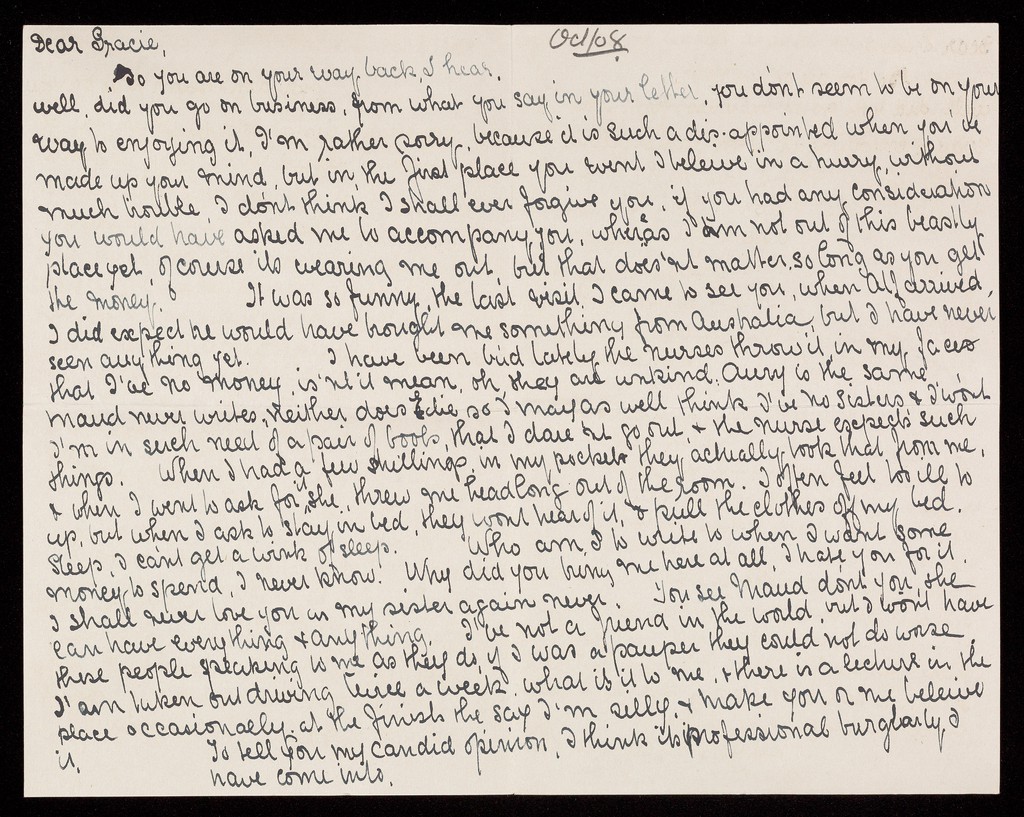 Oct/08
Dear Gracie,
So you are on your way back I hear.
well, did you go on business, from what you say in your letter, you dont seem to be on your
way to enjoying it, I'm rather sorry, because it is such a dis-appointed when you've
made up your mind, but in, the first place you went I beleive in a hurry, without
much trouble, I dont think I shall ever forgive you, if you had any consideration
you would have asked me to accompany you, wheras I am not out of this beastly
place yet, of course its wearing me out, but that does'nt matter, so long as you get
the money. It was so funny, the last visit I came to see you, when Alf arrived,
I did expect he would have brought me something from Australia, but I have never
seen anything yet. I have been bad lately, the nurses throw it in my face
that I've no money, is'nt it mean, oh, they are unkind. Avery is the same
maud never writes, neither does Edie, so I may as well think I've no sisters & I wont
I'm in such need of a pair of boots, that I dare nt go out, & the nurse expects such
things. When I had a few shillings in my pocket they actually took that from me,
& when I went to ask for it she, threw me headlong out of the room. I often feel too ill to
up, but when I ask to stay in bed, they wont hear of it, & pull the clothes off my bed.
Sleep, I cant get a wink of sleep. Who am I to write to when I want some
money to spend, I never know! Why did you bring me here at all, I hate you for it.
I shall never love you as my sister again never. You see Maud dont you, she
can have everything & anything. I've not a friend in the world, but I wont have
these people speaking to me as they do, if I was a pauper they could not do worse.
I am taken out driving twice a week, what is it to me, & there is a lecture in the
place occasionally, at the finish the say I'm silly, & make you or me beleive
it. To tell you my candid opinion, I think its professional burglary, I
have come into.